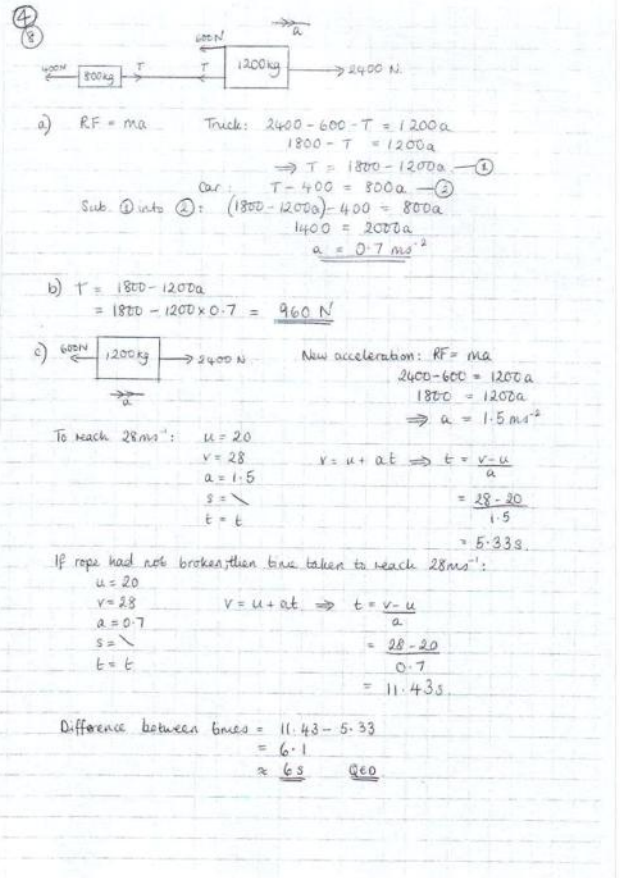 4
8
a
600N
400N 800kg T T 1200kg 2400 N.
a) RF = ma Truck: 2400 - 600 - T = 1200a
1800 - T = 1200a
⇒ T = 1800 - 1200a — ①
Car: T - 400 = 800a — ②
Sub. ① into ②: (1800 - 1200a) - 400 = 800a
1400 = 2000a
a = 0.7 ms⁻²
b) T = 1800 - 1200a
= 1800 - 1200 × 0.7 = 960 N
c) 600N 1200kg 2400 N.
a
New acceleration: RF = ma
2400 - 600 = 1200a
1800 = 1200a
⇒ a = 1.5 ms⁻²
To reach 28ms⁻¹: u = 20
v = 28 v = u + at ⇒ t = v - u / a
a = 1.5
s = \ = 28 - 20 / 1.5
t = t
= 5.33s.
If rope had not broken, then time taken to reach 28ms⁻¹:
u = 20
v = 28 v = u + at ⇒ t = v - u / a
a = 0.7
s = \ = 28 - 20 / 0.7
t = t
= 11.43s.
Difference between times = 11.43 - 5.33
= 6.1
≈ 6s QED